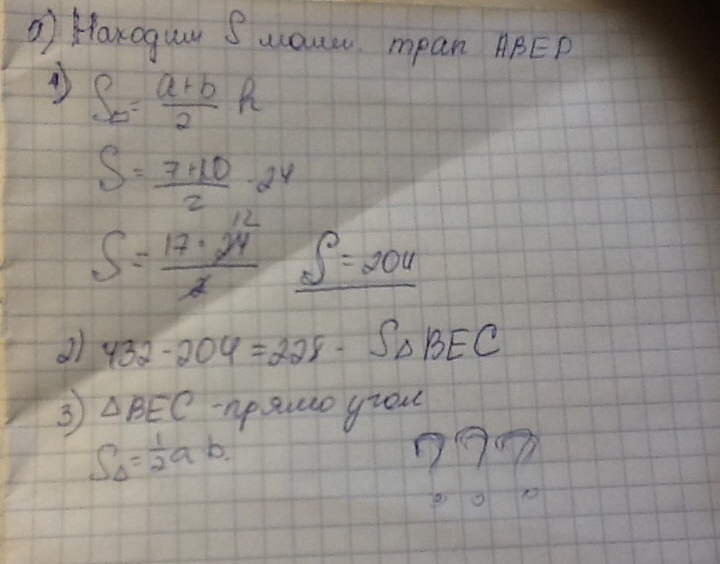 а) Находим S мален. трап ABED
1) S = a+b/2 h
S = 7+10/2 · 24
S = 17 · 24/2 12 S = 204
2) 432 - 204 = 228 - S△BEC
3) △BEC - прямоугол.
S△ = 1/2 a b.
???